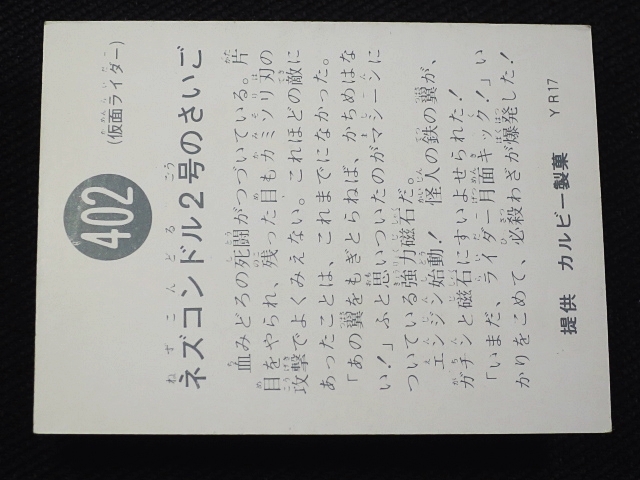 402
(仮面ライダー)
ネズコンドル2号のさいご
血みどろの死闘がつづいている。片
目をやられ、残った目もカミソリ刃の
攻撃でよくみえない。これほどの敵に
あったことは、これまでになかった。
「あの翼をもぎとらねば、かちめはな
い!」ふと思いついたのがマシーンに
ついている強力磁石だ。
エンジン始動! 怪人の鉄の翼が、
ガチンと磁石にすいよせられた!
「いまだ、ライダー月面キック!」い
かりをこめて、必殺わざが爆発した!
YR17
提供 カルビー製菓